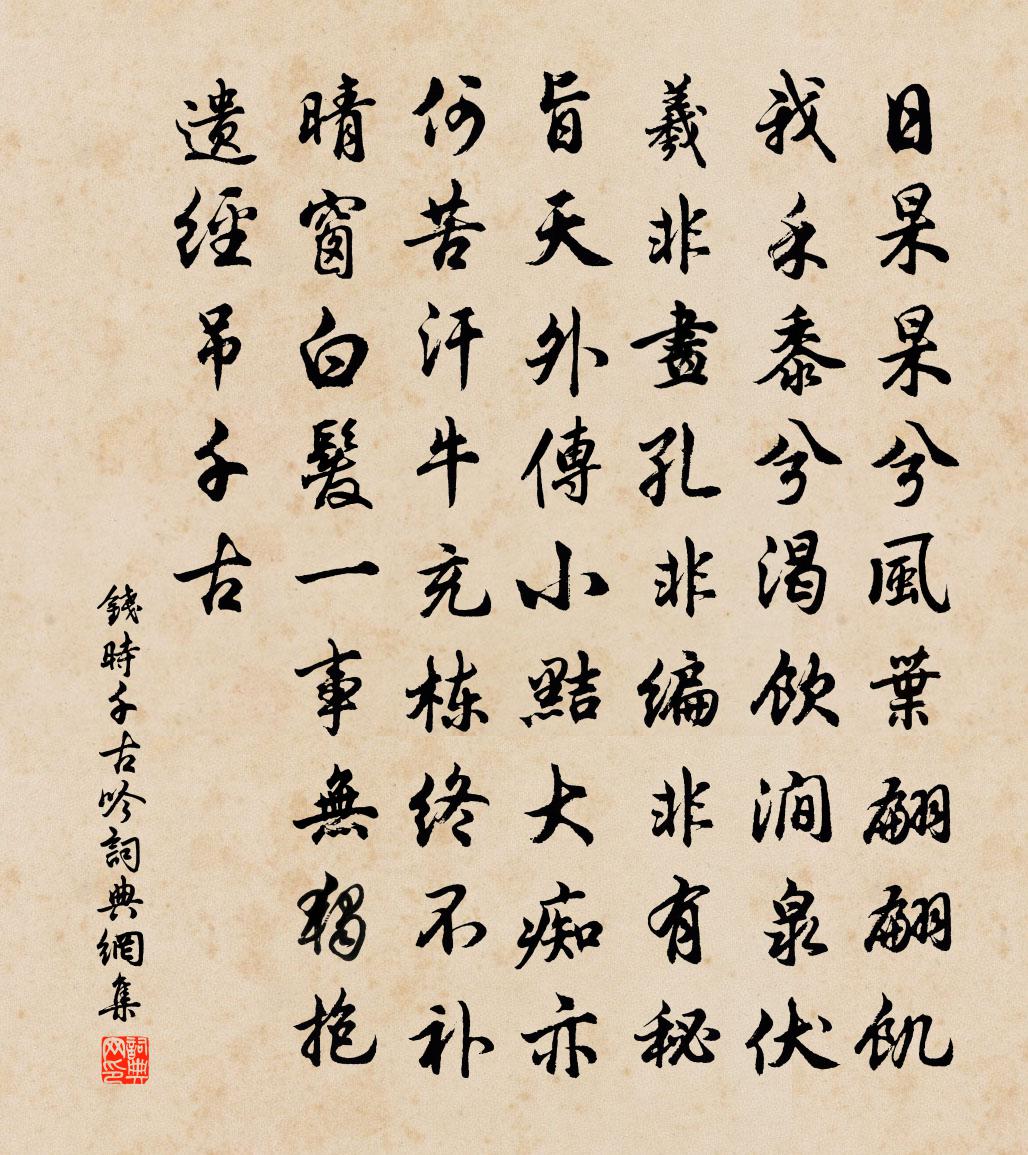 日杲杲兮風葉翩翩飢
我禾黍兮渴飲澗泉伏
羲非畫孔非编非有秘
旨天外傳小黠大痴亦
何苦汗牛充栋终不补
晴窗白髮一事無獨抱
遗經吊千古
錢時千古吟詞典網集
詞典网印